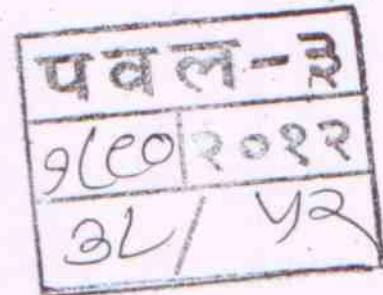 पवल-३
१८९० २०१२
३८ / ५२